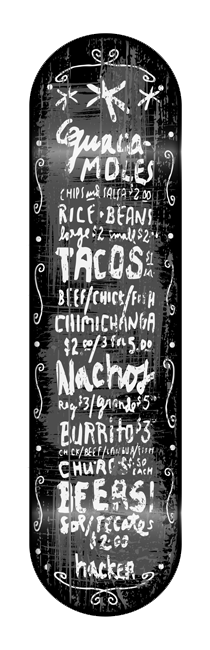 Guaca-
MOLES
CHIPS and SALSA $2.00
RICE + BEANS
large $2 small $2
TACOS
BEEF/CHICK/FISH
CHIMICHANGA
$2.00/3 for 5.00
Nachos
Reg $3/Grande $5
BURRITO $3
CHURRO $1.50
EACH
BEERS!
SOL/TECATES
$2.00
hacker